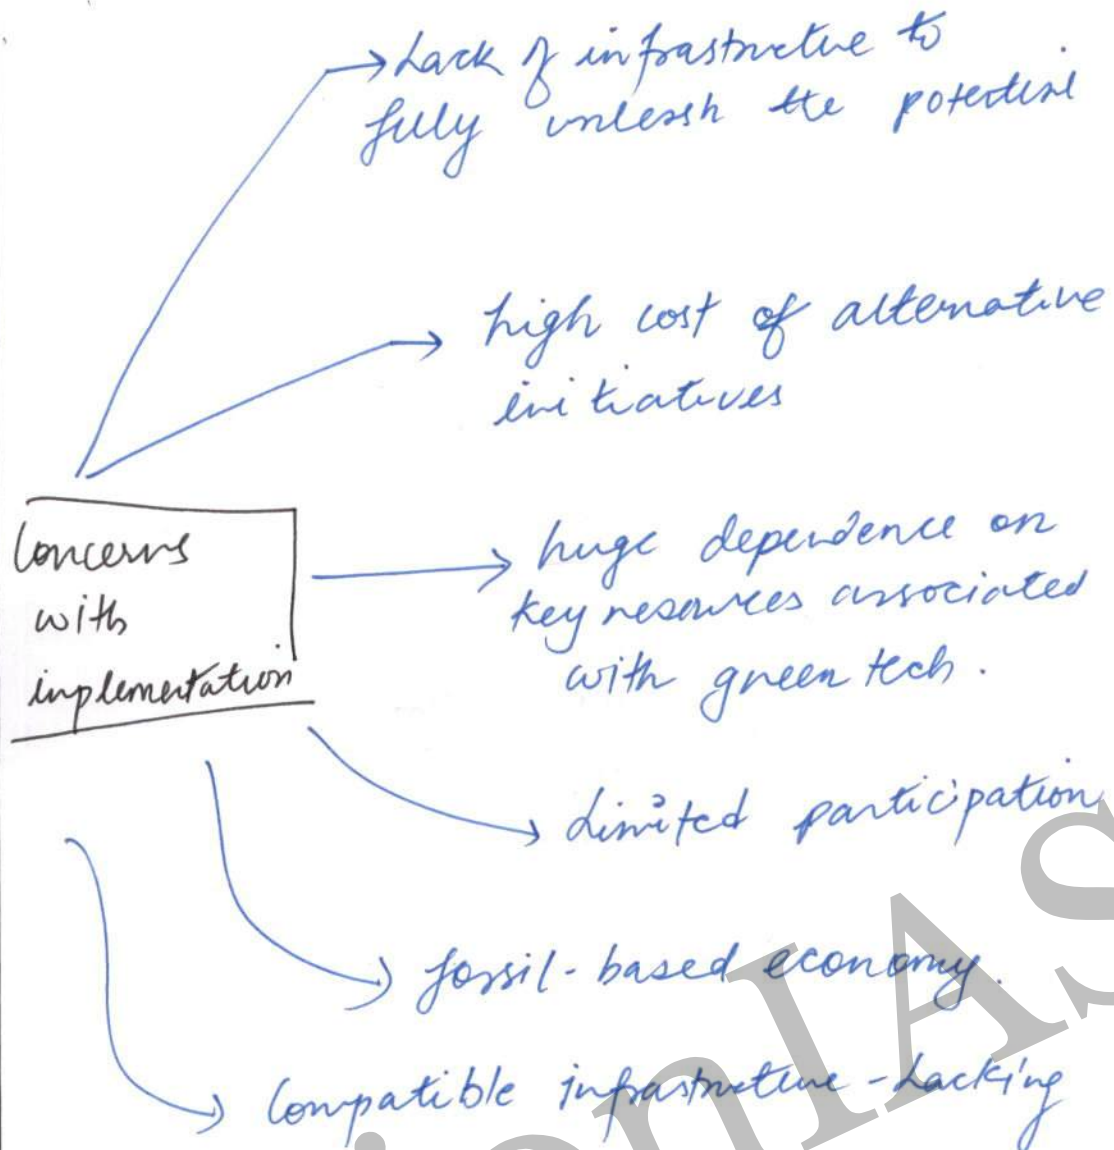 Lack of infrastructure to
fully unleash the potential
high cost of alternative
initiatives
Concerns
with
implementation
huge dependence on
key resources associated
with green tech.
Limited participation
fossil-based economy.
Compatible infrastructure - Lacking
ionIAS